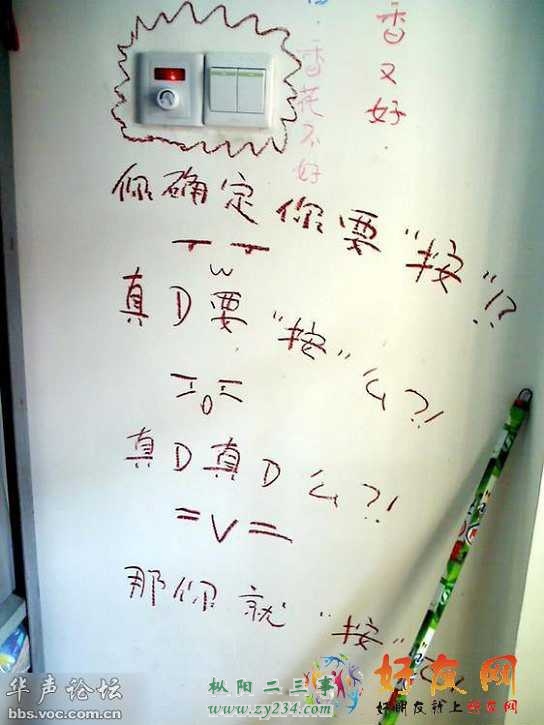 香又好
香花不好
你确定你要“按”!?
真D要“按”么?!
真D真D么?!
=V=
那你就“按”
华声论坛
bbs.voc.com.cn
枞阳二三事
www.zy234.com
好友网
好朋友就上好友网